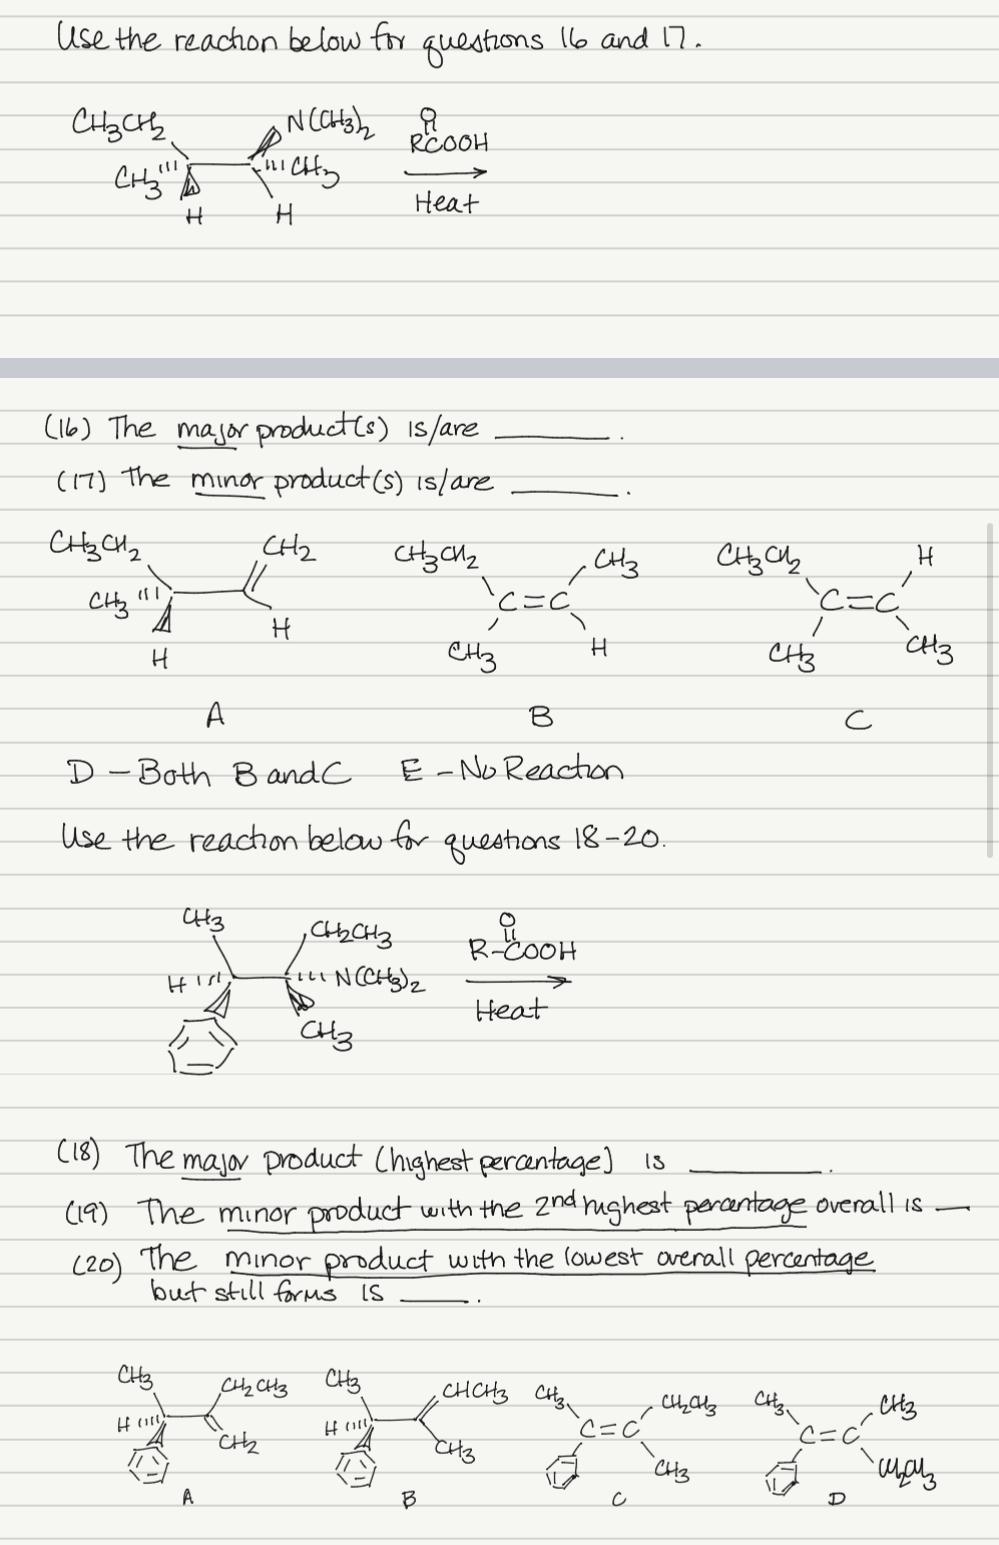 Use the reaction below for questions 16 and 17.
CH3CH2 N(CH3)2 O
CH3 CH3 RCOOH
H H Heat
(16) The major product(s) is/are ______.
(17) The minor product(s) is/are ______.
CH3CH2 CH2 CH3CH2 CH3 CH3CH2 H
CH3 C=C C=C
H H CH3 H CH3 CH3
A B C
D - Both B and C E - No Reaction
Use the reaction below for questions 18-20.
CH3 CH2CH3 O
H N(CH3)2 R-COOH
CH3 Heat
(18) The major product (highest percentage) is ______.
(19) The minor product with the 2nd highest percentage overall is __
(20) The minor product with the lowest overall percentage
but still forms is ____.
CH3 CH2CH3 CH3 CHCH3 CH3 CH2CH3 CH3 CH3
H CH2 H CH3 C=C CH3 C=C CH2CH3
A B C D